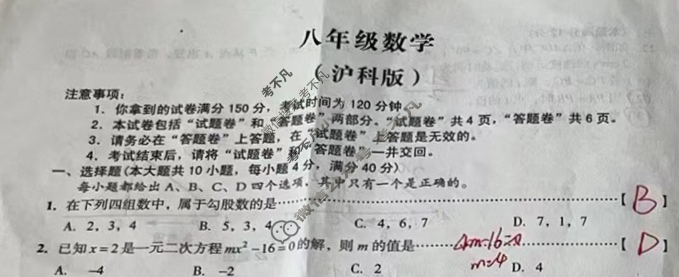 八年级数学
（沪科版）
注意事项：
1. 你拿到的试卷满分 150 分，考试时间为 120 分钟。
2. 本试卷包括“试题卷”和“答题卷”两部分。“试题卷”共 4 页，“答题卷”共 6 页。
3. 请务必在“答题卷”上答题，在“试题卷”上答题是无效的。
4. 考试结束后，请将“试题卷”和“答题卷”一并交回。
一、选择题(本大题共 10 小题，每小题 4 分，满分 40 分)
每小题都给出 A、B、C、D 四个选项，其中只有一个是正确的。
1. 在下列四组数中，属于勾股数的是……【 B 】
A. 2，3，4 B. 5，3，4 C. 4，6，7 D. 7，1，7
2. 已知 x = 2 是一元二次方程 mx² −16 = 0 的解，则 m 的值是……【 D 】
4m-16=0
m=4
A. −4 B. −2 C. 2 D. 4